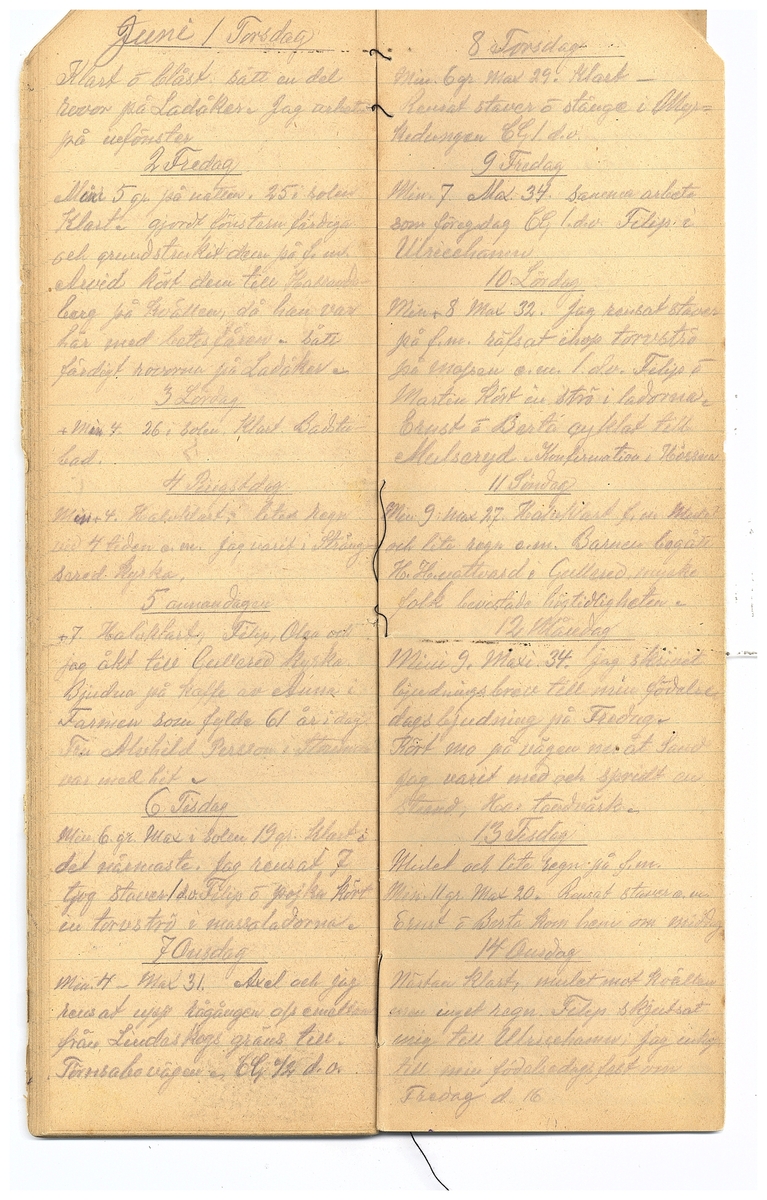 Juni 1 Torsdag
Klart o blåst. sått en del
rovor på Ladåker. Jag arbet
på nfönster
2 Fredag
Min 5 gr. på natten. 25 i solen
Klart. gjordt fönstern färdiga
och grundstrukit dem på f.m.
Arvid kört dem till
berg på kvällen, då han var
här med betesfåren. sått
färdigt rovorna på Ladåker.
3 Lördag
+ Min 4. 26 i solen Klart Badstu
bad.
4 Pingstdag
Min +4. Halvklart, litet regn
vid 4 tiden e.m. Jag varit i Sträng
sered Kyrka.
5 annandagen
+7. Halvklart, Filip, Olga och
jag åkt till Gullered Kyrka
Bjudna på kaffe av Anna i
Farmen som fylde 61 år i dag.
Fru Alvhild Persson i
var med hit
6 Tisdag
Min. 6 gr. Max i solen 19 gr. Klart i
det närmaste. Jag rensat 7
tjog staver 1 d.v. Filip o pojka kört
in torvströ i mossaladorna.
7 Onsdag
Min. 4 – Max 31. Axel och jag
rensat upp rågången
från Lindaskogs gräns till
Törnsabovägen. EG 1/2 d.v.
8 Torsdag
Min. 6 gr Max 29. Klart –
Rensat staver o stänge i Myr=
hedungen EG 1 d.v.
9 Fredag
Min. 7 Max. 34. samma arbete
som föregdag EG 1 d.v. Filip i
Ulricehamn.
10 Lördag
Min + 8 Max 32. Jag rensat staver
på f.m. räfsat ihop torvströ
på mossen e.m. 1. d.v. Filip o
Martin kört in strö i ladorna.
Ernst o Berta cyklat till
Mulseryd. Konfirmation i Hössna
11 Söndag
Min 9. Max 27. Halvklart f.m. Mulet
och lite regn e.m. Barnen begått
H.H. nattvard i Gullered, mycke
folk bevistade högtidligheten.
12 Måndag
Min 9. Maxi 34. Jag skrivit
bjudningsbrev till min födelse
dagsbjudning på Fredag.
Kört mo på vägen ner åt Sand
Jag varit med och spridt en
stund, Har tandvärk.
13 Tisdag
Mulet och lite regn på f.m.
Min. 11 gr. Max 20. Rensat staver e.m.
Ernst o Berta kom hem om middag
14 Onsdag
Nästan klart, mulet mot kvällen
men inget regn. Filip skjutsat
mig till Ulricehamn, jag
till min födelsedagsfest om
Fredag d. 16